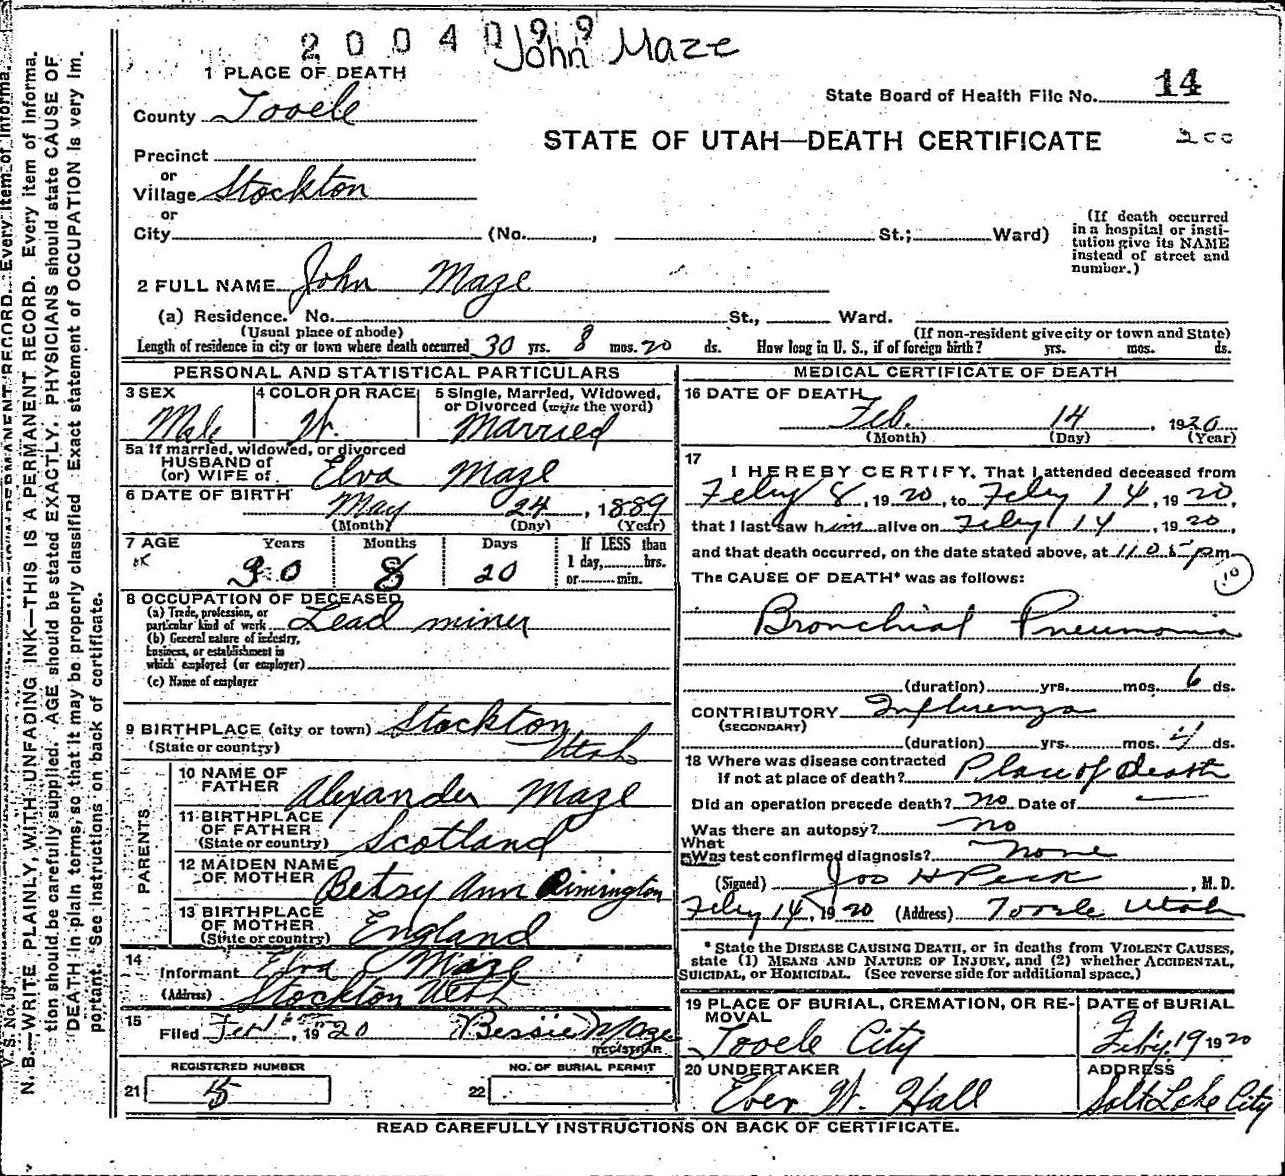 2 0 0 4 0 9 9 John Maze
1 PLACE OF DEATH
State Board of Health File No. 14
County Tooele
STATE OF UTAH—DEATH CERTIFICATE
200
Precinct
or
Village Stockton
or
City (No. , St.; Ward)
(If death occurred in a hospital or insti-
tution give its NAME
instead of street and
number.)
2 FULL NAME John Maze
(a) Residence. No. St., Ward.
(Usual place of abode) (If non-resident give city or town and State)
Length of residence in city or town where death occurred 30 yrs. 8 mos. 20 ds. How long in U. S., if of foreign birth? yrs. mos. ds.
PERSONAL AND STATISTICAL PARTICULARS
3 SEX 4 COLOR OR RACE 5 Single, Married, Widowed,
or Divorced (write the word)
Male W. Married
5a If married, widowed, or divorced
HUSBAND of
(or) WIFE of Elva Maze
6 DATE OF BIRTH May 24, 1889
(Month) (Day) (Year)
7 AGE Years Months Days If LESS than
1 day, hrs.
or min.
OK 30 8 20
8 OCCUPATION OF DECEASED
(a) Trade, profession, or
particular kind of work Lead miner
(b) General nature of industry,
business, or establishment in
which employed (or employer)
(c) Name of employer
9 BIRTHPLACE (city or town) Stockton
(State or country) Utah
PARENTS
10 NAME OF
FATHER Alexander Maze
11 BIRTHPLACE
OF FATHER
(State or country) Scotland
12 MAIDEN NAME
OF MOTHER Betsy Ann Rimington
13 BIRTHPLACE
OF MOTHER
(State or country) England
14
Informant Elva J Maze
(Address) Stockton Utah
15
Filed Feb 1, 1920 Bessie Maze
REGISTRAR
REGISTERED NUMBER NO. OF BURIAL PERMIT
21 15 22
MEDICAL CERTIFICATE OF DEATH
16 DATE OF DEATH
Feb. 14, 1920
(Month) (Day) (Year)
17
I HEREBY CERTIFY, That I attended deceased from
Feby 8, 1920, to Feby 14, 1920,
that I last saw him alive on Feby 14, 1920,
and that death occurred, on the date stated above, at 11.05 pm
The CAUSE OF DEATH* was as follows:
10
Bronchial Pneumonia
(duration) yrs. mos. 6 ds.
CONTRIBUTORY Influenza
(SECONDARY)
(duration) yrs. mos. 4 ds.
18 Where was disease contracted
If not at place of death? Place of death
Did an operation precede death? No Date of —
Was there an autopsy? no
What
Was test confirmed diagnosis? None
(Signed) Jos H Peck, M. D.
Feby 14, 1920 (Address) Tooele Utah
* State the DISEASE CAUSING DEATH, or in deaths from VIOLENT CAUSES,
state (1) MEANS AND NATURE OF INJURY, and (2) whether ACCIDENTAL,
SUICIDAL, or HOMICIDAL. (See reverse side for additional space.)
19 PLACE OF BURIAL, CREMATION, OR RE-
MOVAL
Tooele City
DATE of BURIAL
Feby. 19 1920
20 UNDERTAKER
Eber W. Hall
ADDRESS
Salt Lake City
READ CAREFULLY INSTRUCTIONS ON BACK OF CERTIFICATE.
V. S. No.
N. B.—WRITE PLAINLY, WITH UNFADING INK—THIS IS A PERMANENT RECORD. Every item of informa-
tion should be carefully supplied. AGE should be stated EXACTLY. PHYSICIANS should state CAUSE OF
DEATH in plain terms, so that it may be properly classified. Exact statement of OCCUPATION is very im-
portant. See instructions on back of certificate.